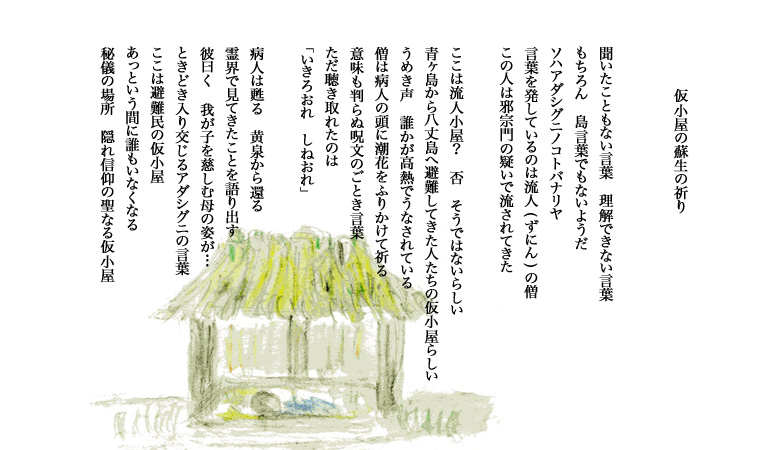 仮小屋の蘇生の祈り
聞いたこともない言葉　理解できない言葉
もちろん　島言葉でもないようだ
ソハアダシグニノコトバナリヤ
言葉を発しているのは流人（ずにん）の僧
この人は邪宗門の疑いで流されてきた
ここは流人小屋？　否　そうではないらしい
青ヶ島から八丈島へ避難してきた人たちの仮小屋らしい
うめき声　誰かが高熱でうなされている
僧は病人の頭に潮花をふりかけて祈る
意味も判らぬ呪文のごとき言葉
ただ聴き取れたのは
「いきろおれ　しねおれ」
病人は甦る　黄泉から還る
霊界で見てきたことを語り出す
彼曰く　我が子を慈しむ母の姿が…
ときどき入り交じるアダシグニの言葉
ここは避難民の仮小屋
あっという間に誰もいなくなる
秘儀の場所　隠れ信仰の聖なる仮小屋